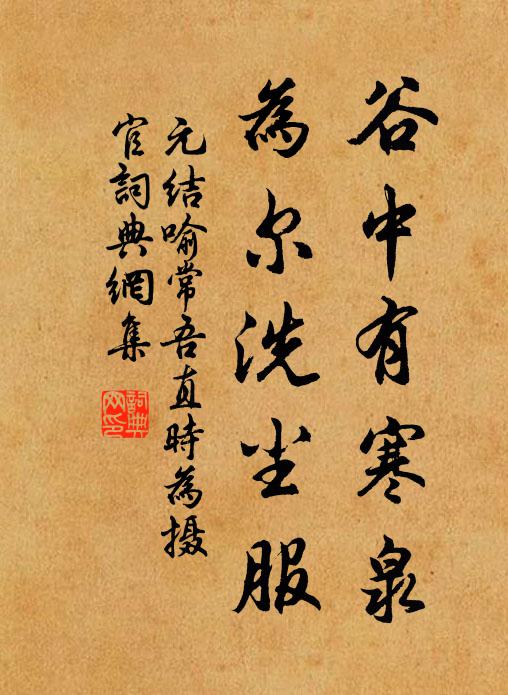 谷中有寒泉
為尔洗尘服
元结喻常吾直時為摄
官詞典網集
詞典網印